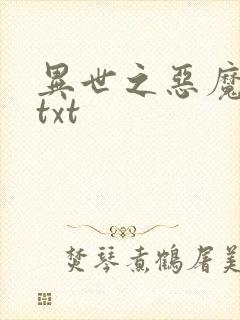 異世之惡魔
txt
焚琴煮鶴屠美